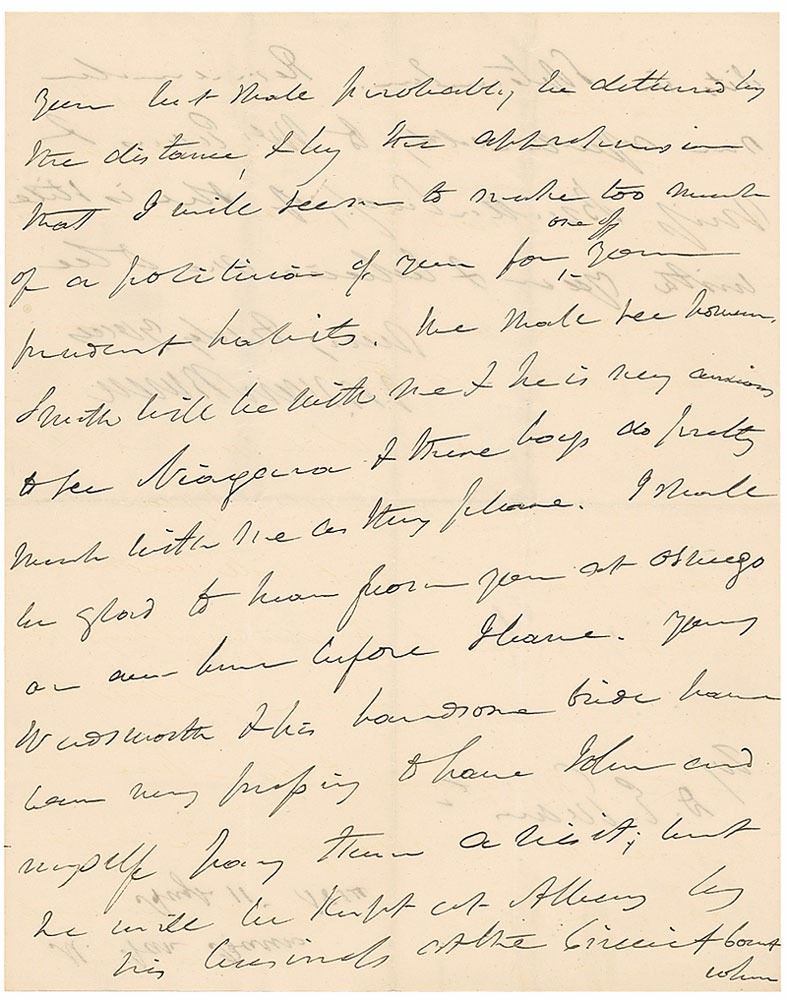 you but shall probably be deterred by
the distance, & by the apprehension
that I will seem to make too much
of a politician of you for one of your
prudent habits. We shall see however.
Smith will be with me & he is very anxious
to see Niagara & these boys do pretty
much with me as they please. I shall
be glad to hear from you at Oswego
or even here before I leave. Young
Wadsworth & his handsome bride have
been very pressing to have John and
myself pay them a visit; but
he will be kept at Albany by
his business at the Circuit & Court
when